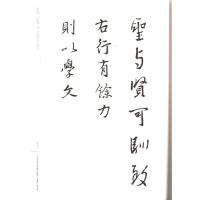 聖与賢可馴致
右行有餘力
則以學文